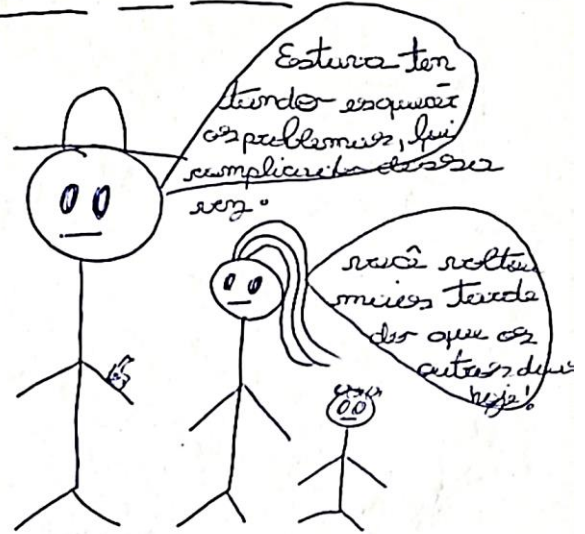 Estava ten
tando esquecer
os problemas, foi
complicado dessa
vez.
você voltou
mais tarde
do que os
outros dias
hoje!